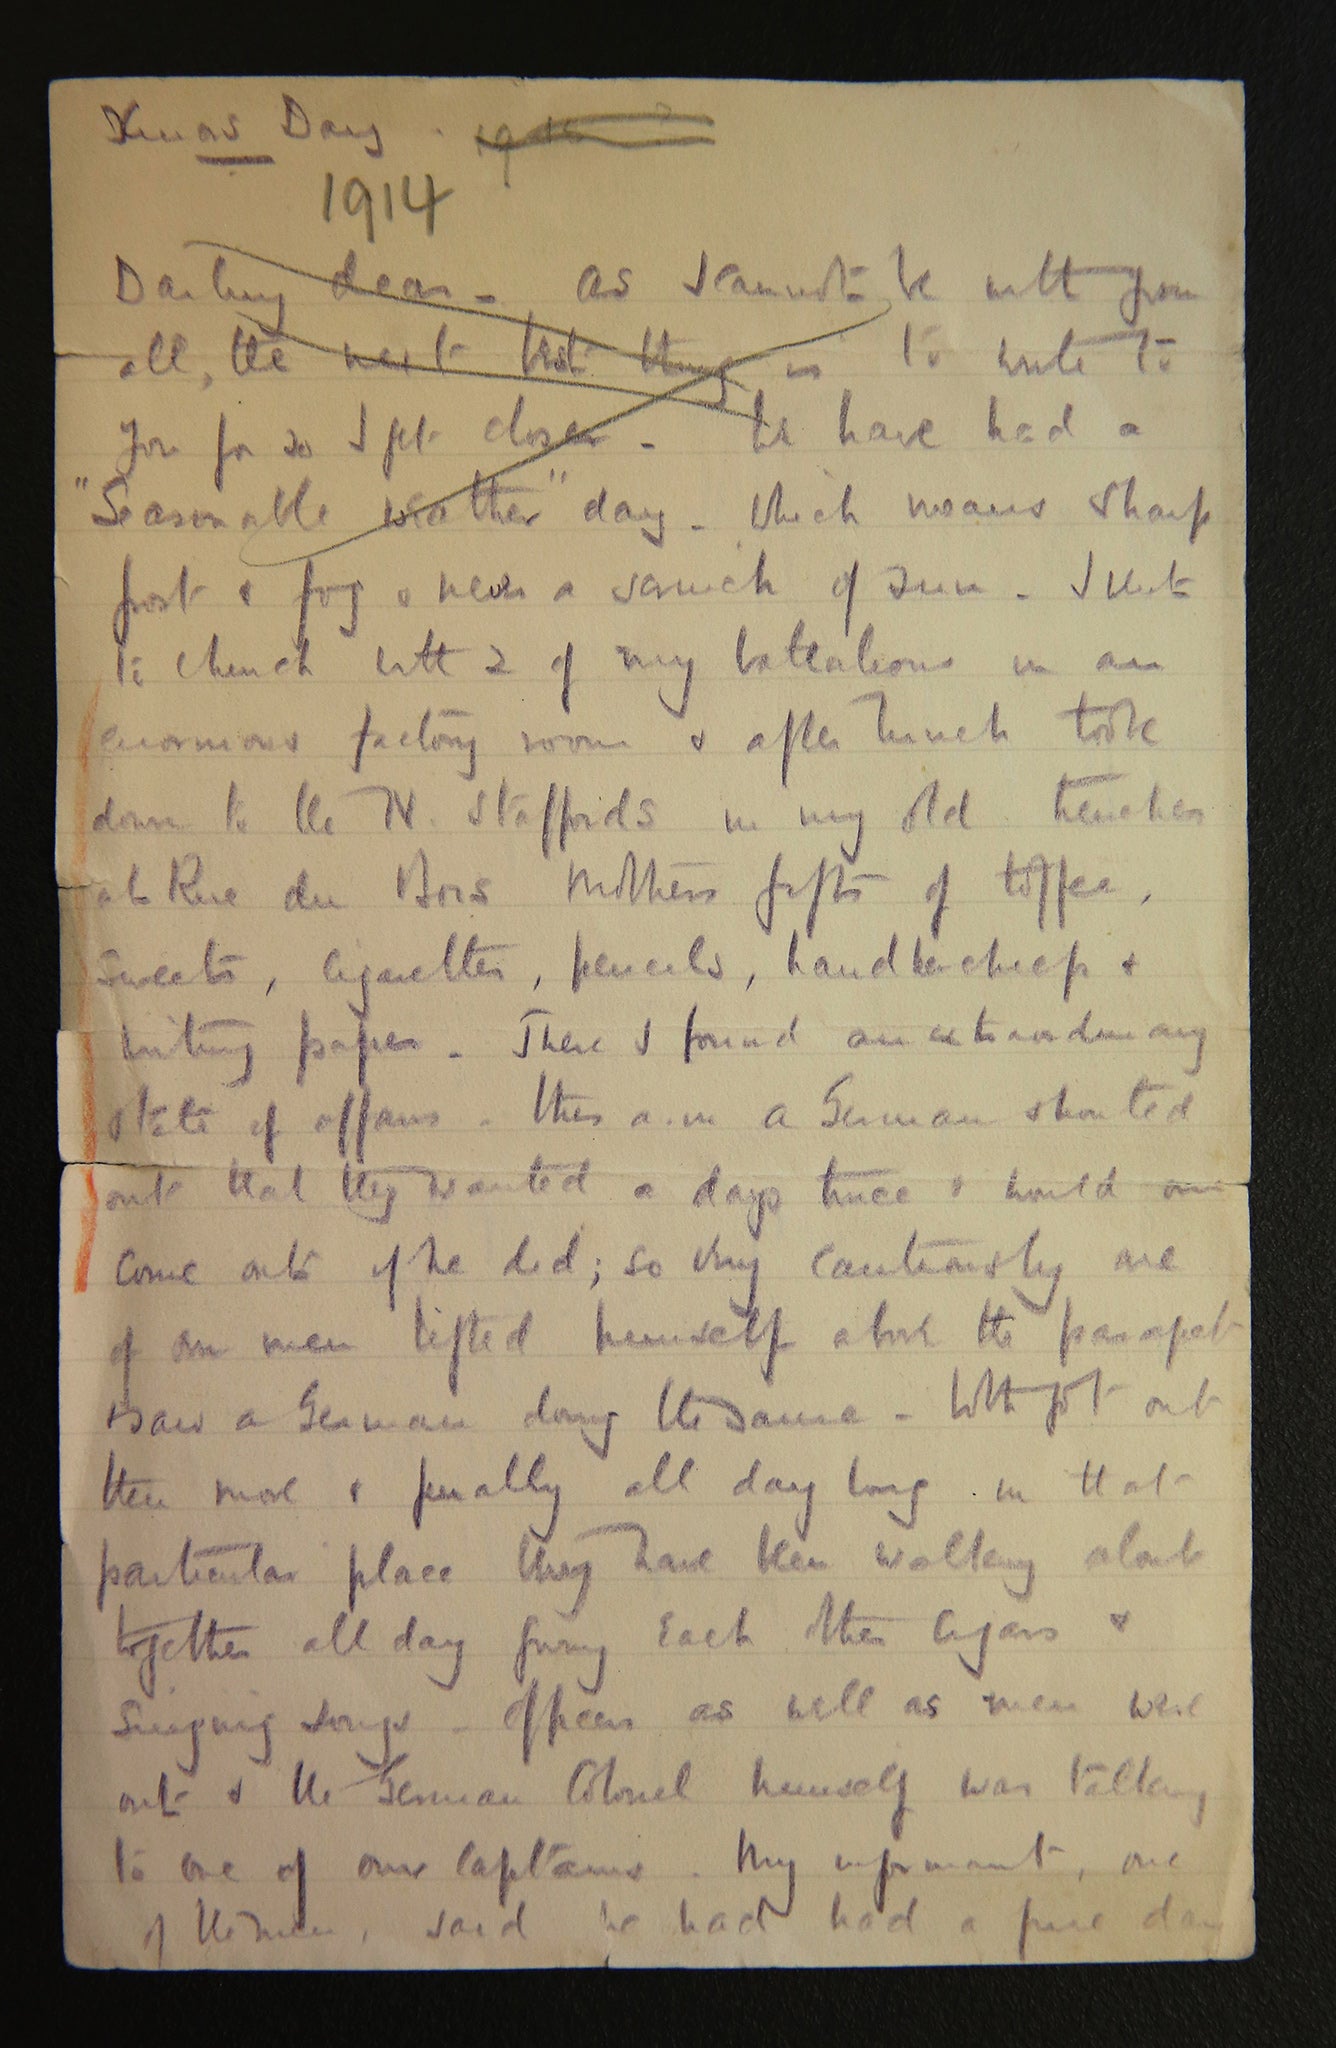 Xmas Day.
1914
Darling dear - As I cannot be with you
all, the next best thing is to write to
you for so I get closer - We have had a
"Seasonable weather" day - which means sharp
frost & fog & never a scrinch of sun - I went
to church with 2 of my battalions in an
enormous factory room & after lunch took
down to the N. Staffords in my old trenches
at Rue du Bois Mothers gifts of toffee,
sweets, cigarettes, pencils, handkerchiefs &
writing paper - There I found an extraordinary
state of affairs - this a.m a German shouted
out that they wanted a days truce & would one
come out if he did; so very cautiously one
of our men lifted himself above the parapet
& saw a German doing the same - Both got out
then more & finally all day long in that
particular place they have been walking about
together all day giving each other cigars &
singing songs - Officers as well as men were
out & the German Colonel himself was talking
to one of our Captains. My informant, one
of the men, said he had had a fine day